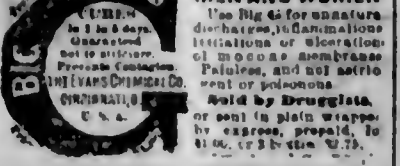 BIG G
CURES
in 1 to 5 days.
Guaranteed
not to stricture.
Prevents Contagion.
THE EVANS CHEMICAL CO.
CINCINNATI, O.
U. S. A.
MEN AND WOMEN
Use Big G for unnatural
discharges, inflammations
irritations or ulcerations
of mucous membranes
Painless, and not astrin
gent or poisonous.
Sold by Druggists,
or sent in plain wrapper
by express, prepaid, for
$1.00, or 3 bottles $2.75.